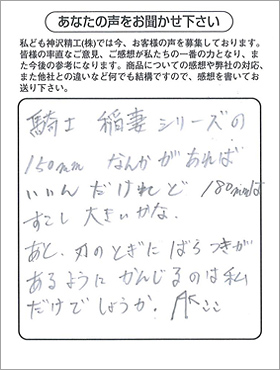 あなたの声をお聞かせ下さい
私ども神沢精工(株)では今、お客様の声を募集しております。
皆様の率直なご意見、ご感想が私たちの一番の力となり、ま
た今後の参考になります。商品についての感想や弊社の対応、
また他社との違いなど何でも結構ですので、感想を書いてお
送り下さい。
騎士 稲妻 シリーズの
150mm なんかがあれば
いいんだけれど 180mmは
すこし大きいかな。
あと、刃のとぎにばらつきが
あるようにかんじるのは私
だけでしょうか。